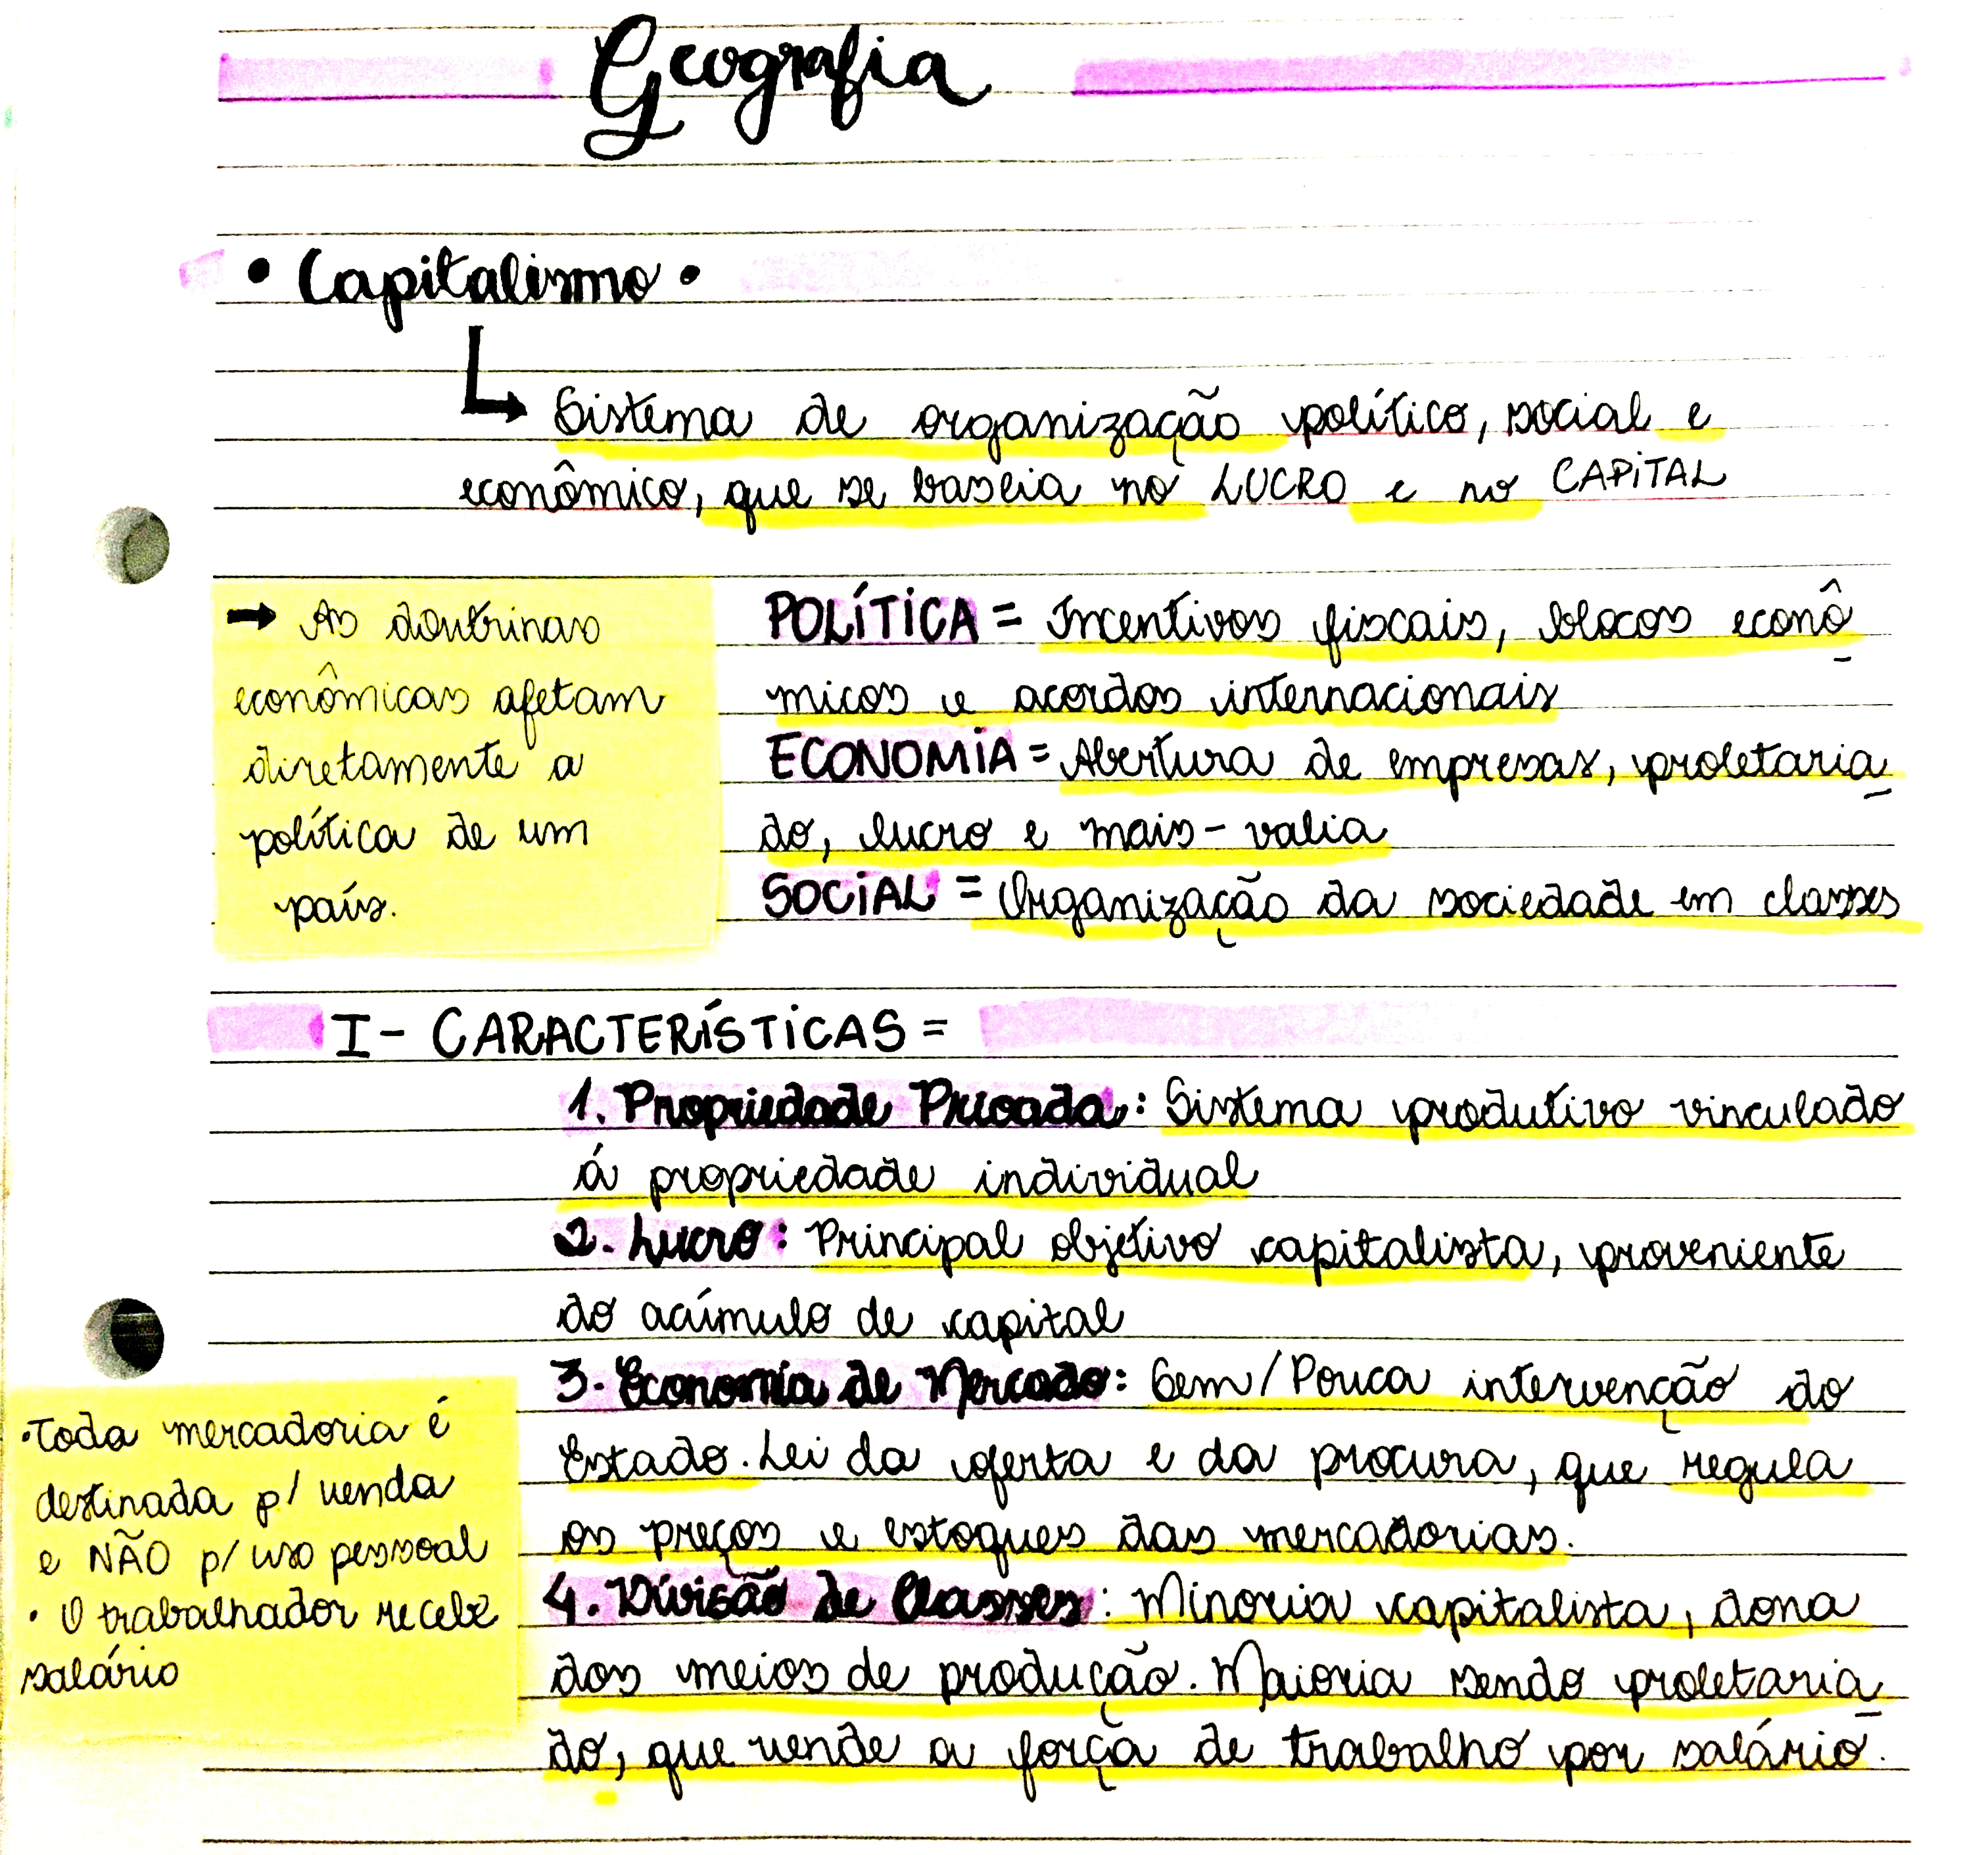 Geografia
• Capitalismo •
Sistema de organização político, social e
econômico, que se baseia no LUCRO e no CAPITAL
→ As doutrinas
econômicas afetam
diretamente a
política de um
país.
POLÍTICA = Incentivos fiscais, blocos econô
micos e acordos internacionais
ECONOMIA = Abertura de empresas, proletaria
do, lucro e mais-valia
SOCIAL = Organização da sociedade em classes
I - CARACTERÍSTICAS =
1. Propriedade Privada: Sistema produtivo vinculado
á propriedade individual
2. Lucro: Principal objetivo capitalista, proveniente
do acúmulo de capital
3. Economia de Mercado: Sem/Pouca intervenção do
Estado. Lei da oferta e da procura, que regula
os preços e estoques das mercadorias.
4. Divisão de Classes: Minoria capitalista, dona
dos meios de produção. Maioria sendo proletaria
do, que vende a força de trabalho por salário.
• Toda mercadoria é
destinada p/ venda
e NÃO p/ uso pessoal
• O trabalhador recebe
salário